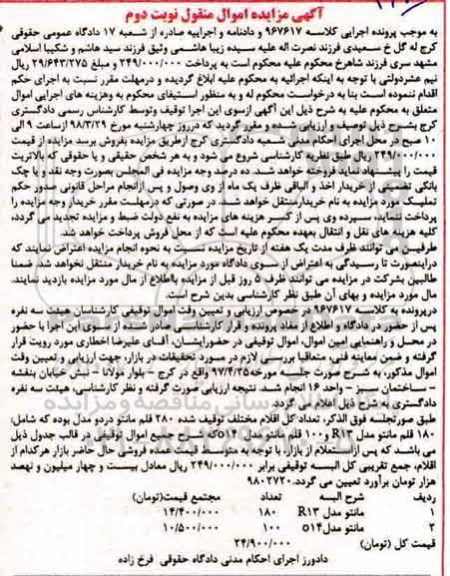 آگهی مزایده اموال منقول نوبت دوم
به موجب پرونده اجرایی کلاسه ۹۶۷۶۱۷ و دادنامه و اجراییه صادره از شعبه ۱۷ دادگاه عمومی حقوقی
کرج له گل خ سعیدی فرزند نصرت اله علیه سیده زیبا هاشمی وثیق فرزند سید هاشم و شکیبا اسلامی
مشهد سری فرزند شاهرخ محکوم علیه محکوم است به پرداخت ۲۴۹/۰۰۰/۰۰۰ و مبلغ ۲۹/۶۴۳/۲۷۵ ریال
نیم عشردولتی با توجه به اینکه اجرائیه به محکوم علیه ابلاغ گردیده و درمهلت مقرر نسبت به اجرای حکم
اقدام ننموده است بنا به درخواست محکوم له و به منظور استیفای محکوم به وهزینه های اجرایی اموال
متعلق به محکوم علیه به شرح ذیل این آگهی ازسوی این اجرا توقیف وتوسط کارشناس رسمی دادگستری
کرج بشرح ذیل توصیف و ارزیابی شده و مقرر گردید که درروز چهارشنبه مورخ ۹۸/۳/۲۹ ازساعت ۹ الی
۱۰ صبح در محل اجرای احکام مدنی شعبه دادگستری کرج ازطریق مزایده بفروش برسد مزایده از قیمت
۲۴۹/۰۰۰/۰۰۰ ریال طبق نظریه کارشناسی شروع می شود و به هر شخص حقیقی و یا حقوقی که بالاترین
قیمت را پیشنهاد نماید فروخته خواهد شد. ده درصد وجه مزایده فی المجلس بصورت وجه نقد و یا چک
بانکی تضمینی از خریدار اخذ و الباقی ظرف یک ماه از وی وصول و پس ازانجام مراحل قانونی صدور حکم
تملیک مورد مزایده به نام خریدارمنتقل خواهد شد. در صورتی که درمهلت مقرر خریدار وجه مزایده را
پرداخت ننماید، سپرده وی پس از کسر هزینه های مزایده به نفع دولت ضبط و مزایده تجدید می گردد،
کلیه هزینه های نقل و انتقال بعهده محکوم علیه است که از محل فروش پرداخت خواهد شد.
طرفین می توانند ظرف مدت یک هفته از تاریخ مزایده نسبت به نحوه انجام مزایده اعتراض نمایند که
دراینصورت تا رسیدگی به اعتراض از سوی دادگاه مورد مزایده به نام خریدار منتقل نخواهد شد. ضمنا
طالبین بشرکت در مزایده می توانند ظرف ۵ روز قبل از مزایده بااطلاع از مال مورد مزایده بازدید نمایند.
مال مورد مزایده و بهای آن طبق نظر کارشناسی بدین شرح است.
درپرونده به کلاسه ۹۶۷۶۱۷ درخصوص ارزیابی و تعیین وقت اموال توقیفی کارشناسان هیئت سه نفره
پس از حضور در دادگاه و اطلاع از مفاد پرونده و قرار کارشناسی صادر شده از سوی این اجرا با حضور
در محل و راهنمایی امین اموال، اموال توقیفی در حضورایشان، آقای علیرضا اخطاری مورد رویت قرار
گرفته و ضمن معاینه فنی، متعاقبا بررسی لازم در مورد تحقیقات در بازار، جهت ارزیابی و تعیین وقت
اموال مذکور، به شرح صورت جلسه مورخه ۹۷/۴/۲۵ واقع در کرج - بلوار مولانا - نبش خیابان بنفشه
- ساختمان سبز - واحد ۱۶ انجام شد. نتیجه ارزیابی صورت گرفته و نظر کارشناسی، هیئت سه نفره
دادگستری به شرح ذیل اعلام می گردد.
طبق صورتجلسه فوق الذکر، تعداد کل اقلام مختلف توقیف شده ۲۸۰ قلم مانتو دردو مدل بوده که شامل:
۱۸۰ قلم مانتو مدل R۱۳ و ۱۰۰ قلم مانتو مدل o۱۴ که شرح جمیع اموال توقیفی در قالب جدول ذیل
می باشد که پس ازاستعلام از بازار، با توجه به متوسط قیمت عمده فروشی حال حاضر بازار هرکدام از
اقلام، جمع تقریبی کل البسه توقیفی برابر ۲۴۹/۰۰۰/۰۰۰ ریال معادل بیست و چهار میلیون و نهصد
هزار تومان برآورد تعیین می گردد. ۹۸۰۲۷۲۰
ردیف شرح البسه تعداد مجتمع قیمت(تومان)
۱ مانتو مدل R۱۳ ۱۸۰ ۱۴/۴۰۰/۰۰۰
۲ مانتو مدل o۱۴ ۱۰۰ ۱۰/۵۰۰/۰۰۰
قیمت کل (تومان) ۲۴/۹۰۰/۰۰۰
دادورز اجرای احکام مدنی دادگاه حقوقی فرخ زاده